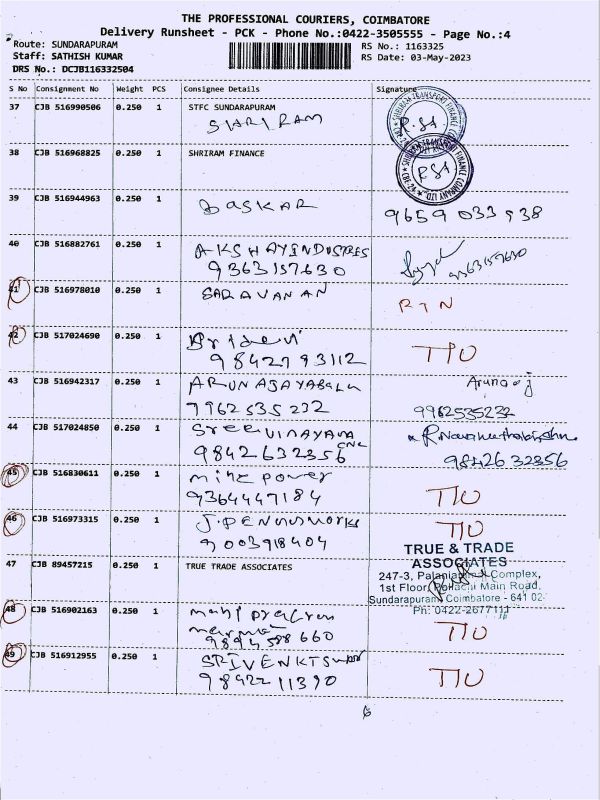 THE PROFESSIONAL COURIERS, COIMBATORE
Delivery Runsheet - PCK - Phone No.:0422-3505555 - Page No.:4
Route: SUNDARAPURAM
RS No.: 1163325
Staff: SATHISH KUMAR
RS Date: 03-May-2023
DRS No.: DCJB116332504
S No Consignment No Weight PCS Consignee Details Signature
37 CJB 516990506 0.250 1 STFC SUNDARAPURAM
SHRI RAM
38 CJB 516968825 0.250 1 SHRIRAM FINANCE
39 CJB 516944963 0.250 1 BASKAR
9659 033 938
40 CJB 516882761 0.250 1 AKSHAY INDUSTRIES
9363157630 9363157630
41 CJB 516978010 0.250 1 SARAVANAN RTN
42 CJB 517024690 0.250 1
9842793112 TIU
43 CJB 516942317 0.250 1 ARUNAJAYABALU
7962535232 9962535232
44 CJB 517024850 0.250 1 Sree VINAYAGA CNC
9842632356 9842632356
45 CJB 516830611 0.250 1 power
9364447184 TIU
46 CJB 516973315 0.250 1 TIU
9003918404
47 CJB 89457215 0.250 1 TRUE TRADE ASSOCIATES
TRUE & TRADE
ASSOCIATES
247-3, Complex,
1st Floor, Pollachi Main Road,
Sundarapuram, Coimbatore - 641 02
Ph: 0422-2677111
48 CJB 516902163 0.250 1
9894588660 TIU
49 CJB 516912955 0.250 1
9842211390 TIU
6